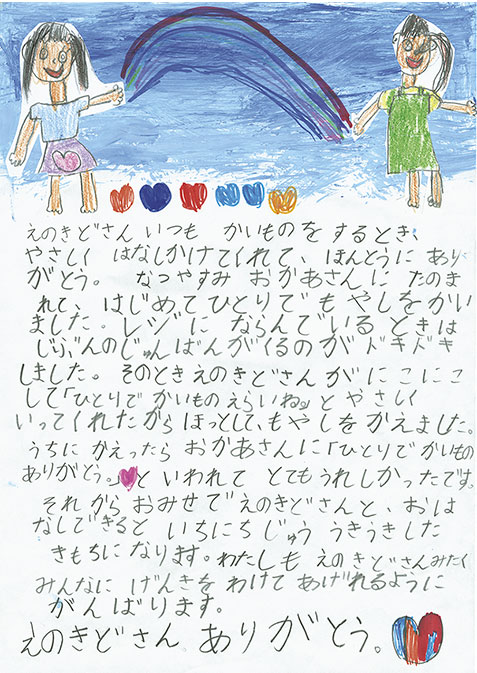 えのきどさん いつも かいものを するとき、
やさしく はなしかけてくれて、ほんとうに あり
がとう。 なつやすみ おかあさんに たのま
れて、はじめてひとりで もやしをかい
ました。レジに ならんでいる ときは
じぶんのじゅんばんがくるのが ドキドキ
しました。そのとき えのきどさんが にこにこ
して「ひとりで かいもの えらいね。」と やさしく
いってくれたから ほっとして、もやしを かえました。
うちに かえったら おかあさんに「ひとりで かいもの
ありがとう。」と いわれて とても うれしかったです。
それから おみせで えのきどさんと、おは
なしできると いちにち じゅう うきうきした
きもちに なります。わたしも えのきどさんみたく
みんなに げんきを わけて あげれるように
がんばります。
えのきどさん。ありがとう。